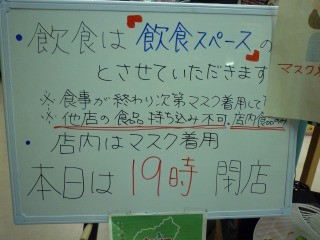 ・飲食は『飲食スペース』の
とさせていただきます
マスク
※食事が終わり次第マスク着用して
※他店の食品持ち込み不可。店内食品のみ
・店内はマスク着用
本日は19時閉店